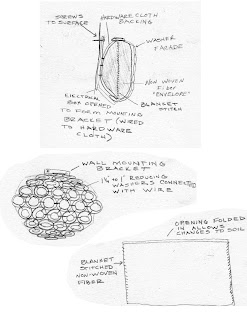 SCREWS
TO SURFACE
HARDWARE CLOTH
BACKING
WASHER
FACADE
NON WOVEN
FIBER
"ENVELOPE"
BLANKET
STITCH
ELECTRICAL
BOX OPENED
TO FORM MOUNTING
BRACKET (WIRED
TO HARDWARE
CLOTH)
WALL MOUNTING
BRACKET
REDUCING
WASHERS CONNECTED
WITH WIRE
OPENING FOLDED
IN ALLOWS
CHANGES TO SOIL
BLANKET
STITCHED
NON-WOVEN
FIBER